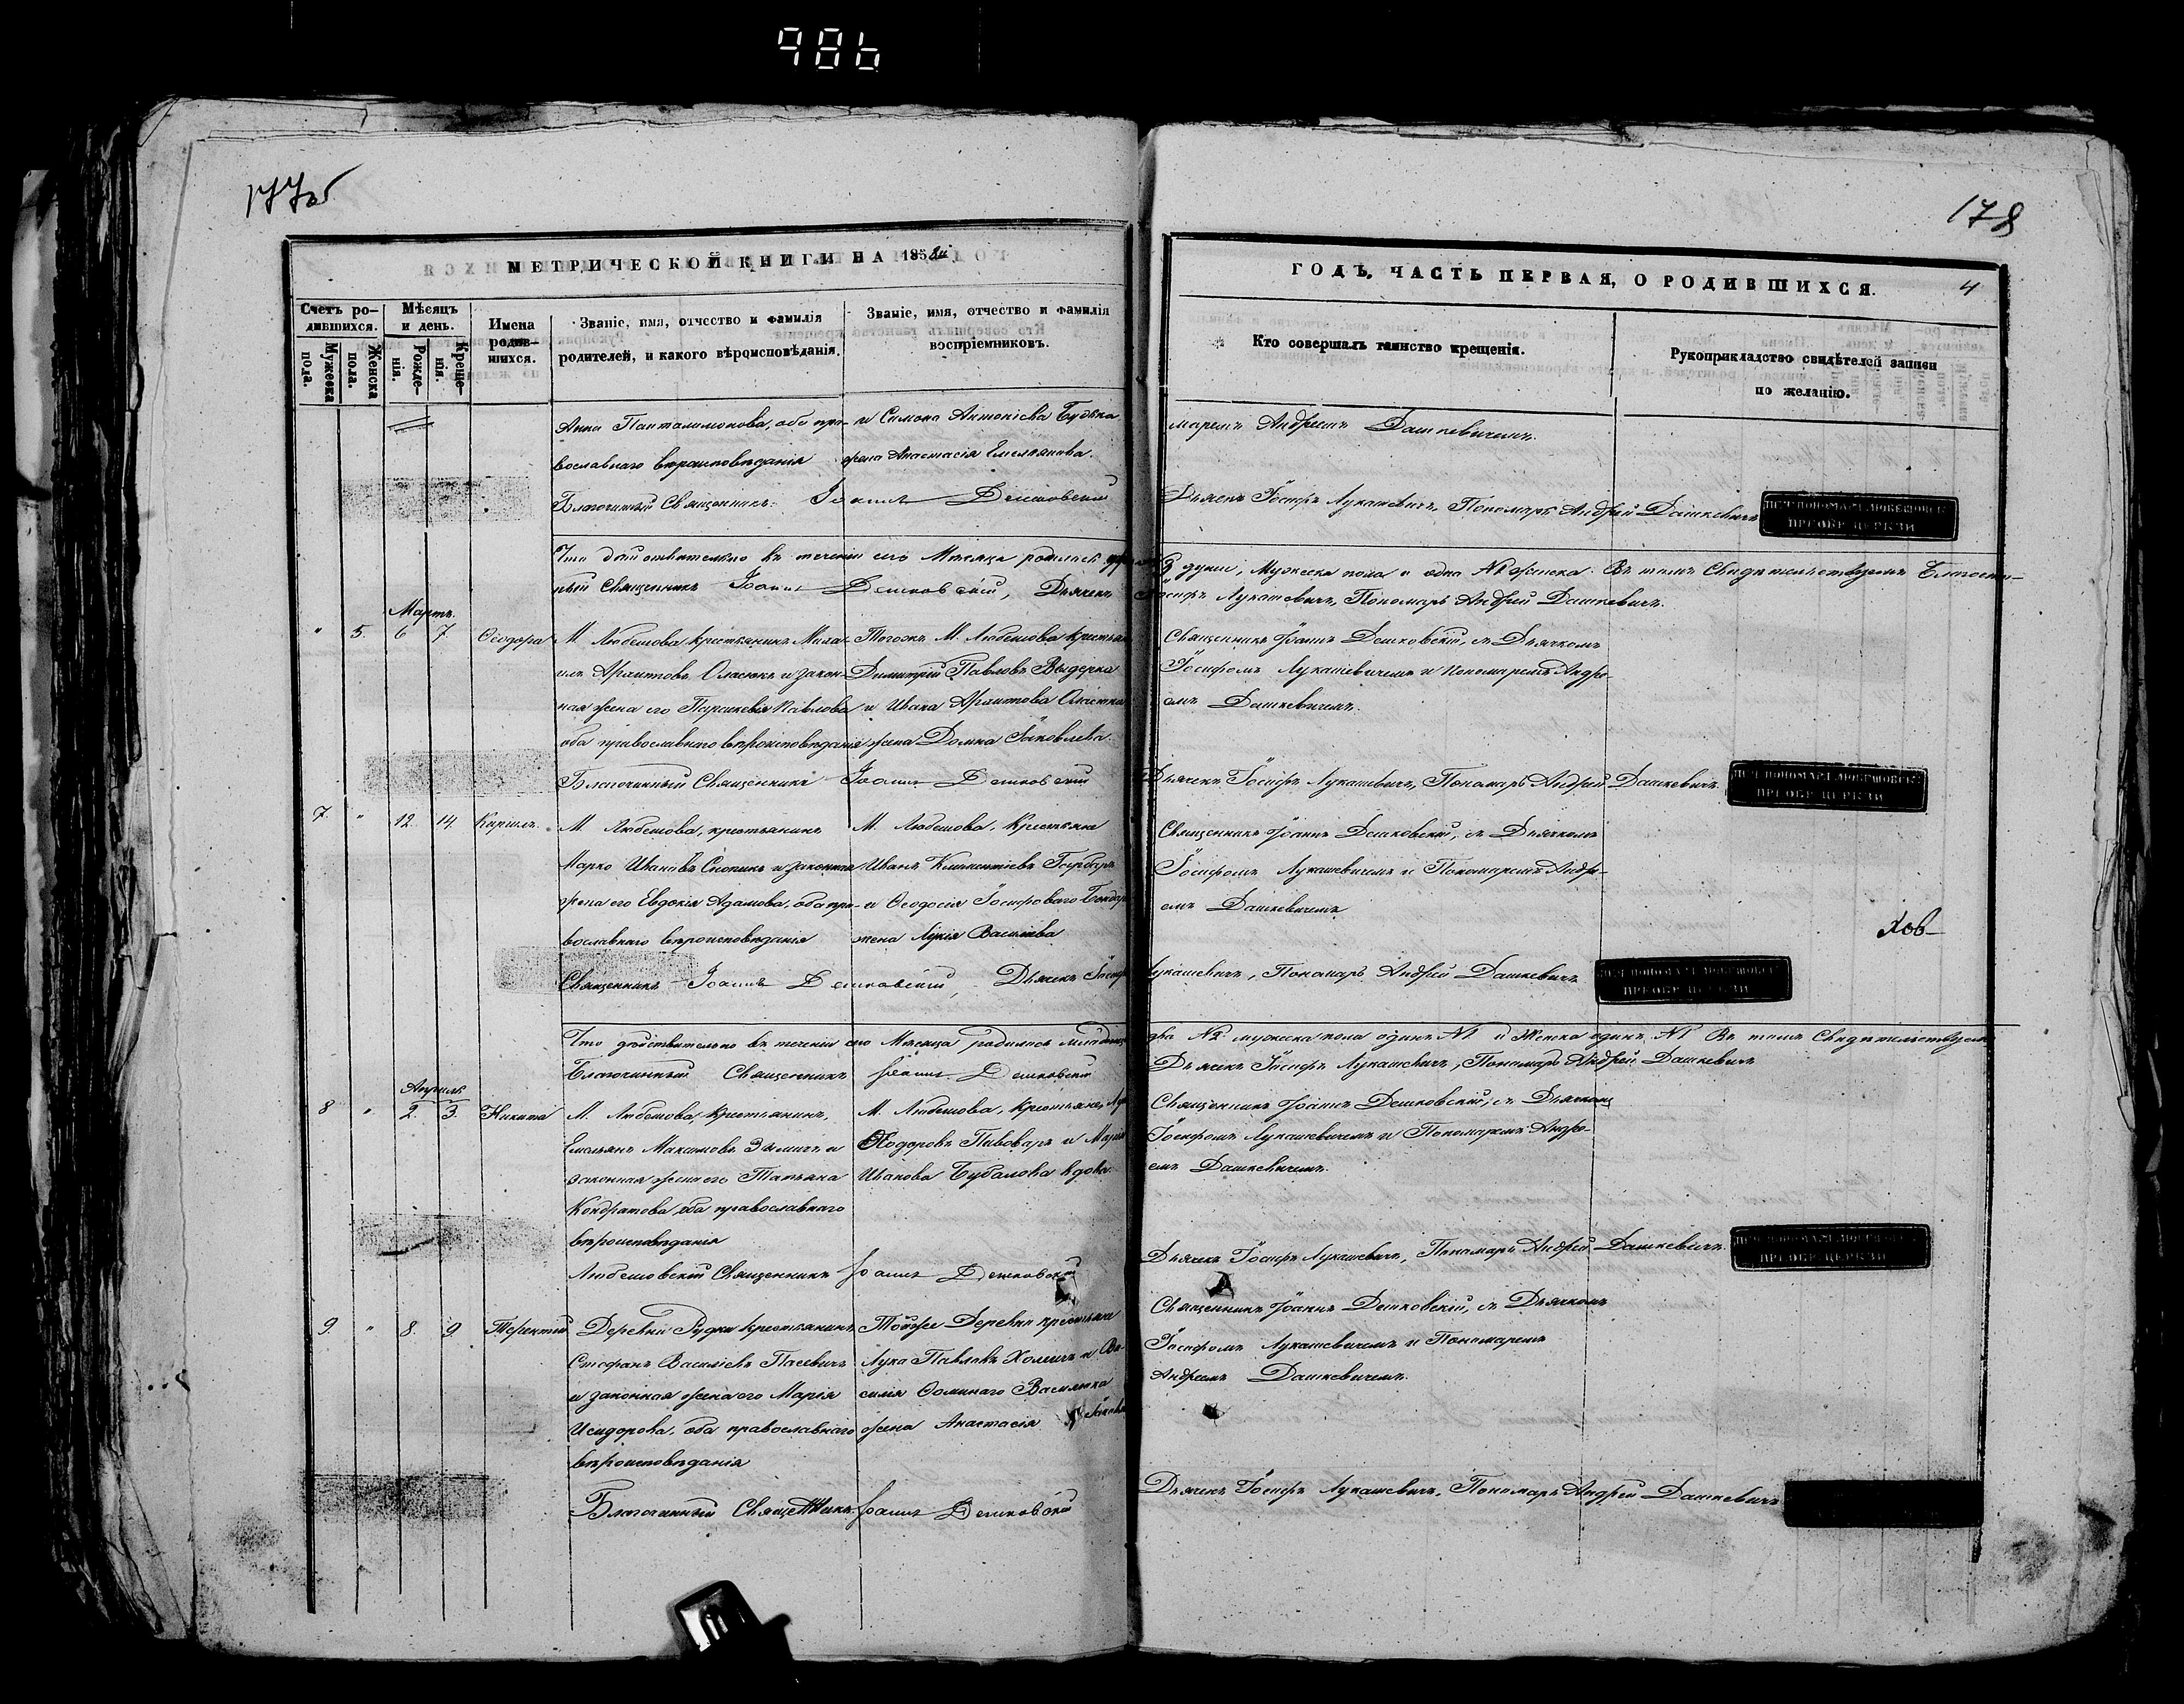 986
177об
178
МЕТРИЧЕСКОЙ КНИГИ НА 185
ГОДЪ, ЧАСТЬ ПЕРВАЯ, О РОДИВШИХСЯ.
4
Счетъ ро-
дившихся.
Мужеска
пола.
Женска
пола.
Мѣсяцъ
и день.
Рожде-
нія.
Креще-
нія.
Имена
родив-
шихся.
Званіе, имя, отчество и фамилія
родителей, и какого вѣроисповѣданія.
Званіе, имя, отчество и фамилія
воспріемниковъ.
Кто совершалъ таинство крещенія.
Рукоприкладство свидѣтелей записи
по желанію.
Анна Панталимонова, оба пра-
вославнаго вѣроисповѣданія
и Симона Антоніева
жена Анастасія Емельянова.
маремъ Андреемъ Дашкевичемъ.
Благочинный Священникъ Іоаннъ Дешковскій
Дьячекъ Іосифъ Лукашевичъ, Пономарь Андрей Дашкевичъ
ПЕЧ. ПОНОМАРЯ ЛЮБЕШОВСК.
ПРЕОБР. ЦЕРКВИ
Что дѣйствительно въ теченіи сего Мѣсяца родилось
души, Мужеска пола и одна №1 женска. Въ томъ Свидѣтельствуемъ Благочин-
ный Священникъ Іоаннъ Дешковскій, Дьячекъ
Іосифъ Лукашевичъ, Пономарь Андрей Дашкевичъ.
Мартъ.
" 5. 6 7. Ѳеодора
М. Любешова крестьянинъ Миха-
илъ Архиповъ Оласюкъ и закон-
ная жена его Параскевія Павлова
оба православнаго вѣроисповѣданія
Тогожъ М. Любешова крестьян
Димитрій Павловъ Выдерка
и Ивана Архипова
жена Домна Яковлева.
Священникъ Іоаннъ Дешковскій, съ Дьячкомъ
Іосифомъ Лукашевичемъ и Пономаремъ Андре-
емъ Дашкевичемъ.
Благочинный Священникъ Іоаннъ Дешковскій
Дьячекъ Іосифъ Лукашевичъ, Пономарь Андрей Дашкевичъ.
ПЕЧ. ПОНОМАРЯ ЛЮБЕШОВСК.
ПРЕОБР. ЦЕРКВИ
7. " 12. 14. Кириллъ.
М. Любешова, крестьянинъ
Марко Ивановъ и законная
жена его Евдокія Адамова, оба пра-
вославнаго вѣроисповѣданія
М. Любешова, Крестьяне
Иванъ Климентіевъ Гарбаръ
и Ѳеодосія Іосифоваго Бондар
жена Лукія Васильева
Священникъ Іоаннъ Дешковскій, съ Дьячкомъ
Іосифомъ Лукашевичемъ и Пономаремъ Андре-
емъ Дашкевичемъ
Священникъ Іоаннъ Дешковскій, Дьячекъ Іосифъ
Лукашевичъ, Пономарь Андрей Дашкевичъ
ПЕЧ. ПОНОМАРЯ ЛЮБЕШОВСК.
ПРЕОБР. ЦЕРКВИ
Что дѣйствительно въ теченіи сего Мѣсяца родилось
два №2 мужеска пола одинъ №1 и Женска одинъ №1 Въ томъ Свидѣтельствуемъ
Благочинный Священникъ Іоаннъ Дешковскій
Дьячекъ Іосифъ Лукашевичъ, Пономарь Андрей Дашкевичъ
Апрѣль
8 " 2. 3. Никита
М. Любешова, Крестьянинъ,
Емельянъ Максимовъ и
законная жена его Татьяна
Кондратова, оба православнаго
вѣроисповѣданія
М. Любешова, Крестьяне,
Ѳеодоровъ Пивоваръ и Марія
Иванова вдова.
Священникъ Іоаннъ Дешковскій, съ Дьячкомъ
Іосифомъ Лукашевичемъ и Пономаремъ Андре-
емъ Дашкевичемъ.
Любешовскій Священникъ Іоаннъ Дешковскій
Дьячекъ Іосифъ Лукашевичъ, Пономарь Андрей Дашкевичъ.
ПЕЧ. ПОНОМАРЯ ЛЮБЕШОВСК.
ПРЕОБР. ЦЕРКВИ
9. " 8. 9 Терентій
Деревни Рудки крестьянинъ
Стефанъ Васильевъ Пасевичъ
и законная жена его Марія
Исидорова, оба православнаго
вѣроисповѣданія
Тойже Деревни крестьяне
Лука Павловъ Холичъ и Ва-
силія Ѳоминаго
жена Анастасія
Священникъ Іоаннъ Дешковскій, съ Дьячкомъ
Іосифомъ Лукашевичемъ и Пономаремъ
Андреемъ Дашкевичемъ.
Благочинный Священникъ Іоаннъ Дешковскій
Дьячекъ Іосифъ Лукашевичъ, Пономарь Андрей Дашкевичъ